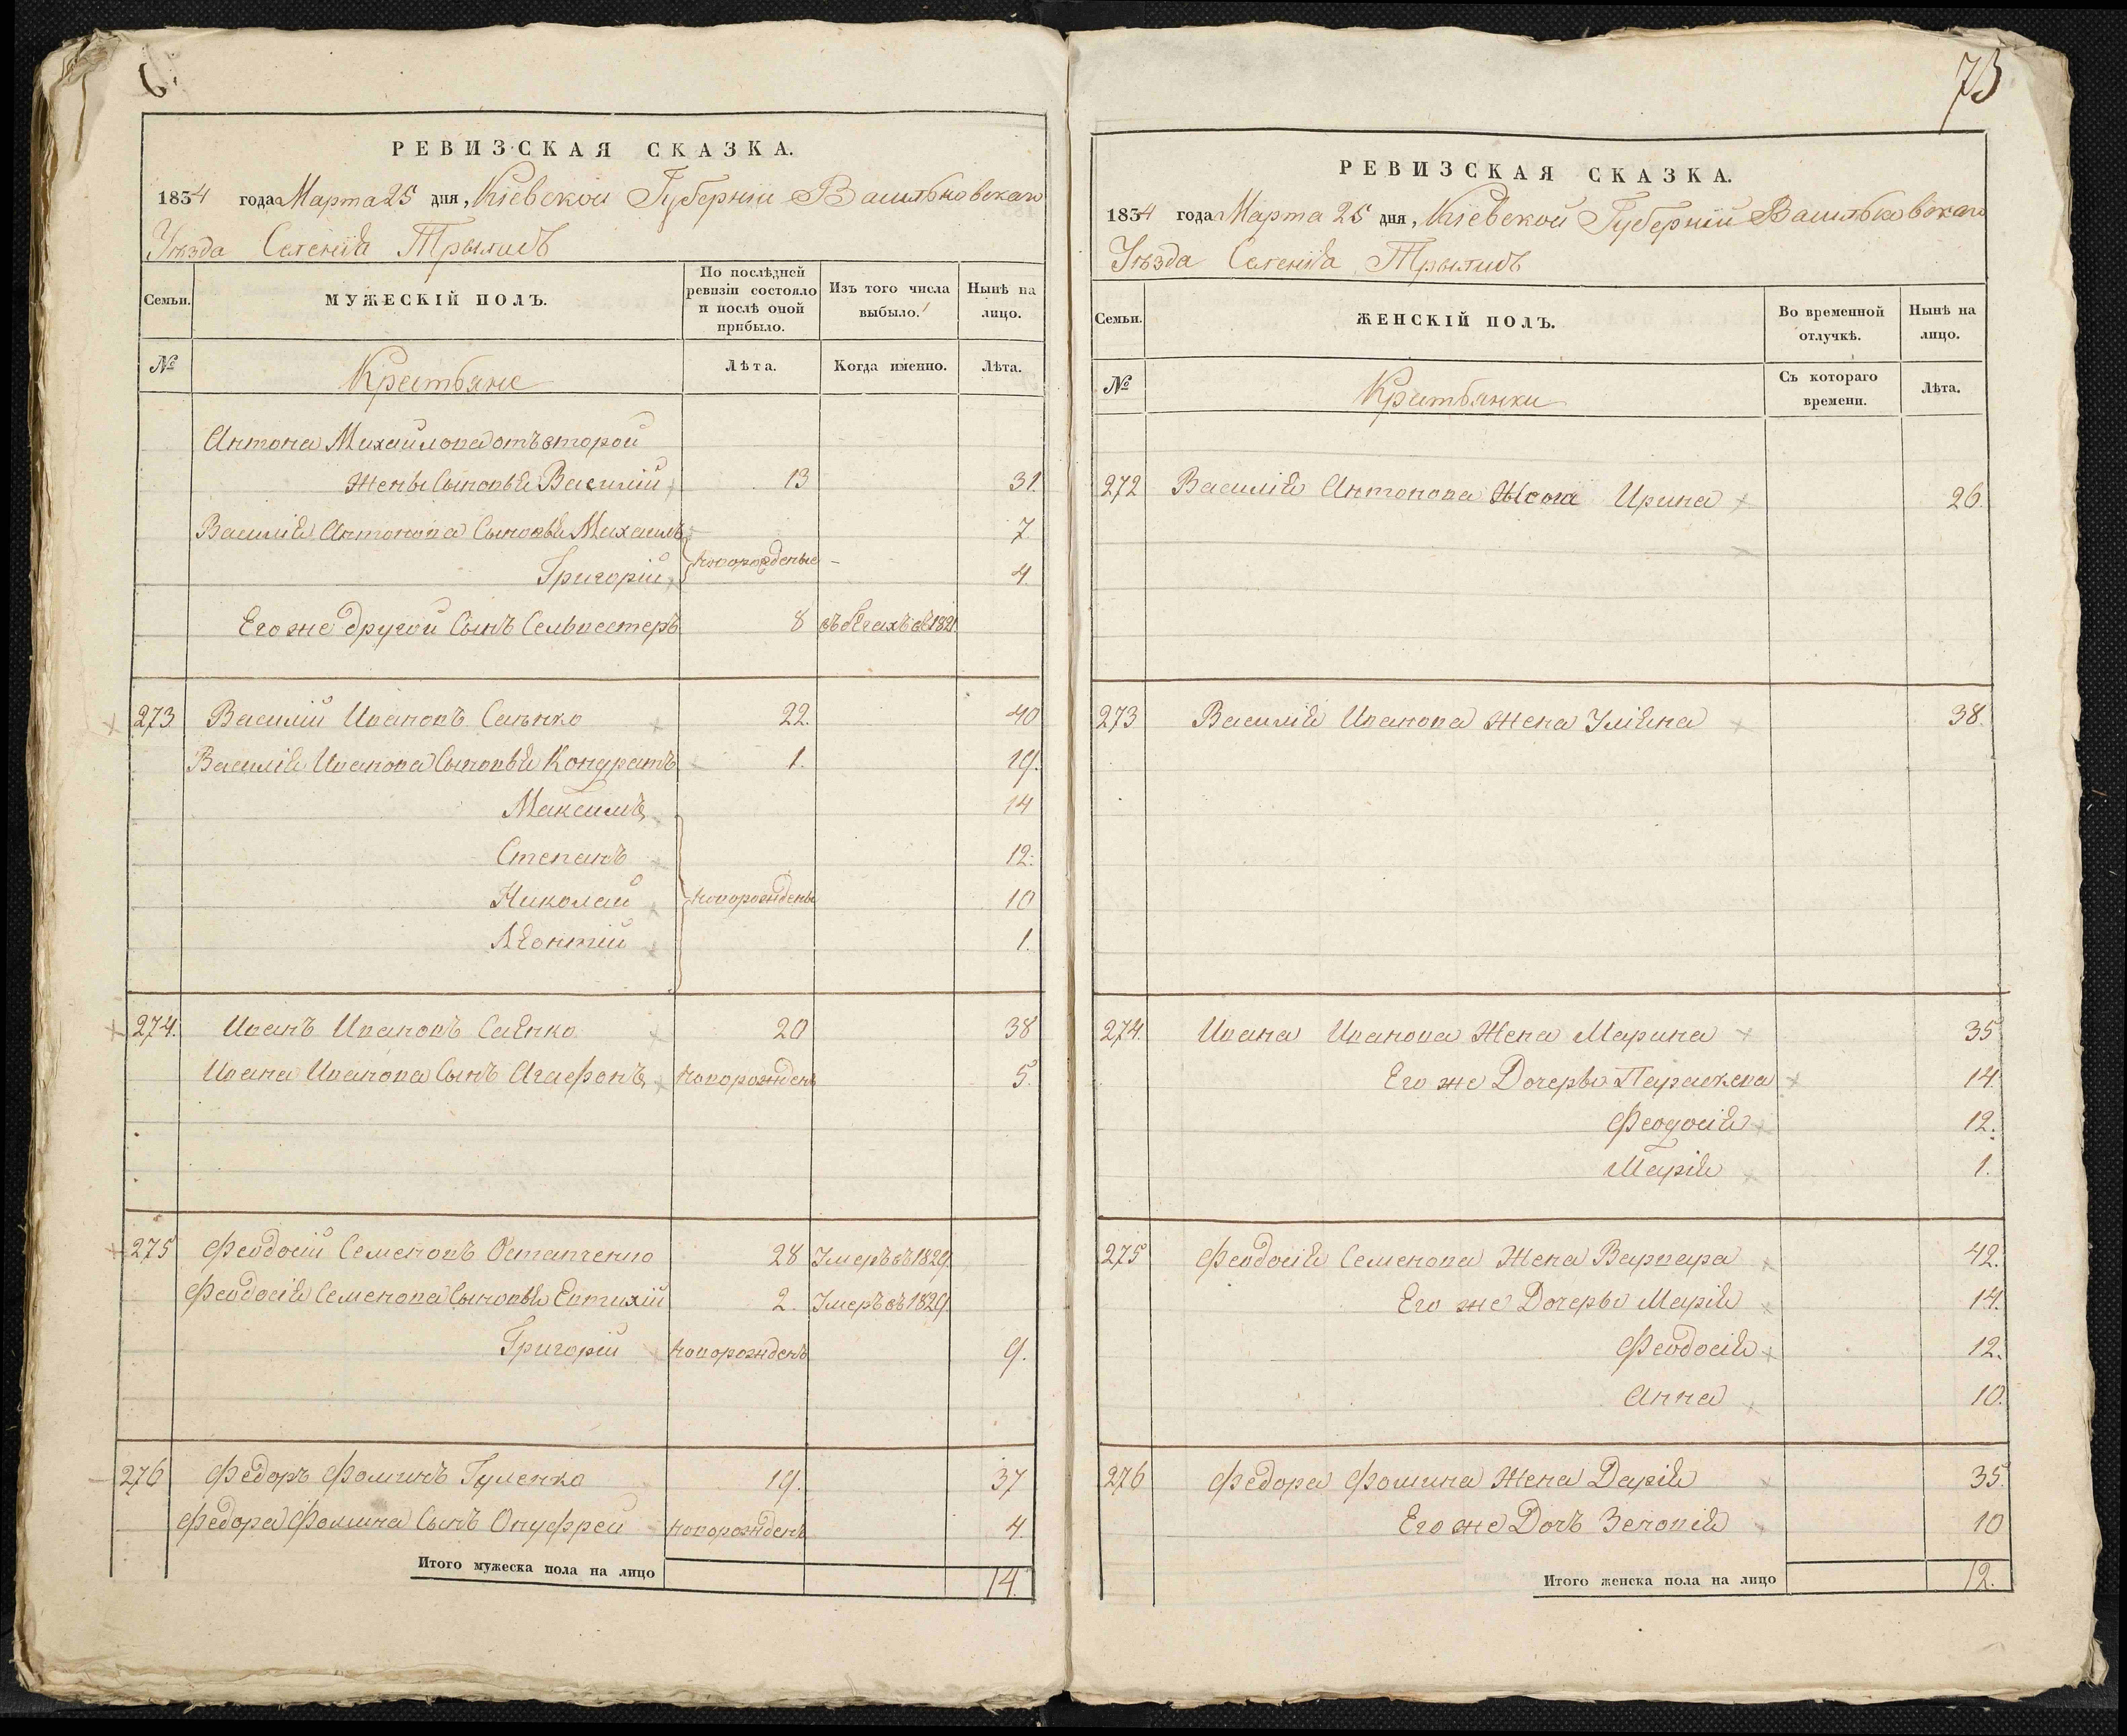 6.
РЕВИЗСКАЯ СКАЗКА.
1834 года Марта 25 дня, Кіевской Губерніи Васильковскаго
Уѣзда Селенія Трылисъ
Семьи.
МУЖЕСКІЙ ПОЛЪ.
По послѣдней ревизіи состояло и послѣ оной прибыло.
Изъ того числа выбыло.
Нынѣ на лицо.
№
Крестьяне
Лѣта.
Когда именно.
Лѣта.
Антона Михайлова отъ второй
жены Сыновья Василій 13 31.
Василія Антонова Сыновья Михаилъ 7.
Григорій новорожденые 4.
Его же другой Сынъ Сельвестеръ 8 въ бѣгахъ съ 1821
273 Василій Ивановъ Саѣнко 22. 40
Василія Иванова Сыновья Кондратъ 1. 19.
Максимъ 14
Степанъ 12.
Николай новорождены 10
Леонтій 1.
274. Иванъ Ивановъ Саенко 20 38
Ивана Иванова Сынъ Агафонъ новорожденъ 5.
275 Феодосій Семеновъ Остапченко 28 Умеръ въ 1829
Феодосія Семенова Сыновья Евтихій 2. Умеръ въ 1829
Григорій новорожденъ 9.
276 Федоръ Фоминъ Гуменко 19. 37
Федора Фомина Сынъ Онуфрей новорожденъ 4
Итого мужеска пола на лицо 14.
73
РЕВИЗСКАЯ СКАЗКА.
1834 года Марта 25 дня, Кіевской Губерніи Васильковскаго
Уѣзда Селенія Трылисъ
Семьи.
ЖЕНСКІЙ ПОЛЪ.
Во временной отлучкѣ.
Нынѣ на лицо.
№
Крестьянки
Съ котораго времени.
Лѣта.
272 Василія Антонова Жена Ирина 26.
273 Василія Иванова жена Уліяна 38.
274. Ивана Иванова Жена Марина 35
Его же Дочеры Параскева 14.
Феодосія 12.
Марія 1.
275 Феодосія Семенова Жена Варвара 42.
Его же Дочеры Марія 14.
Феодосія 12.
Анна 10.
276 Федора Фомина Жена Дарія 35.
Его же Дочъ Зеновія 10
Итого женска пола на лицо 12.